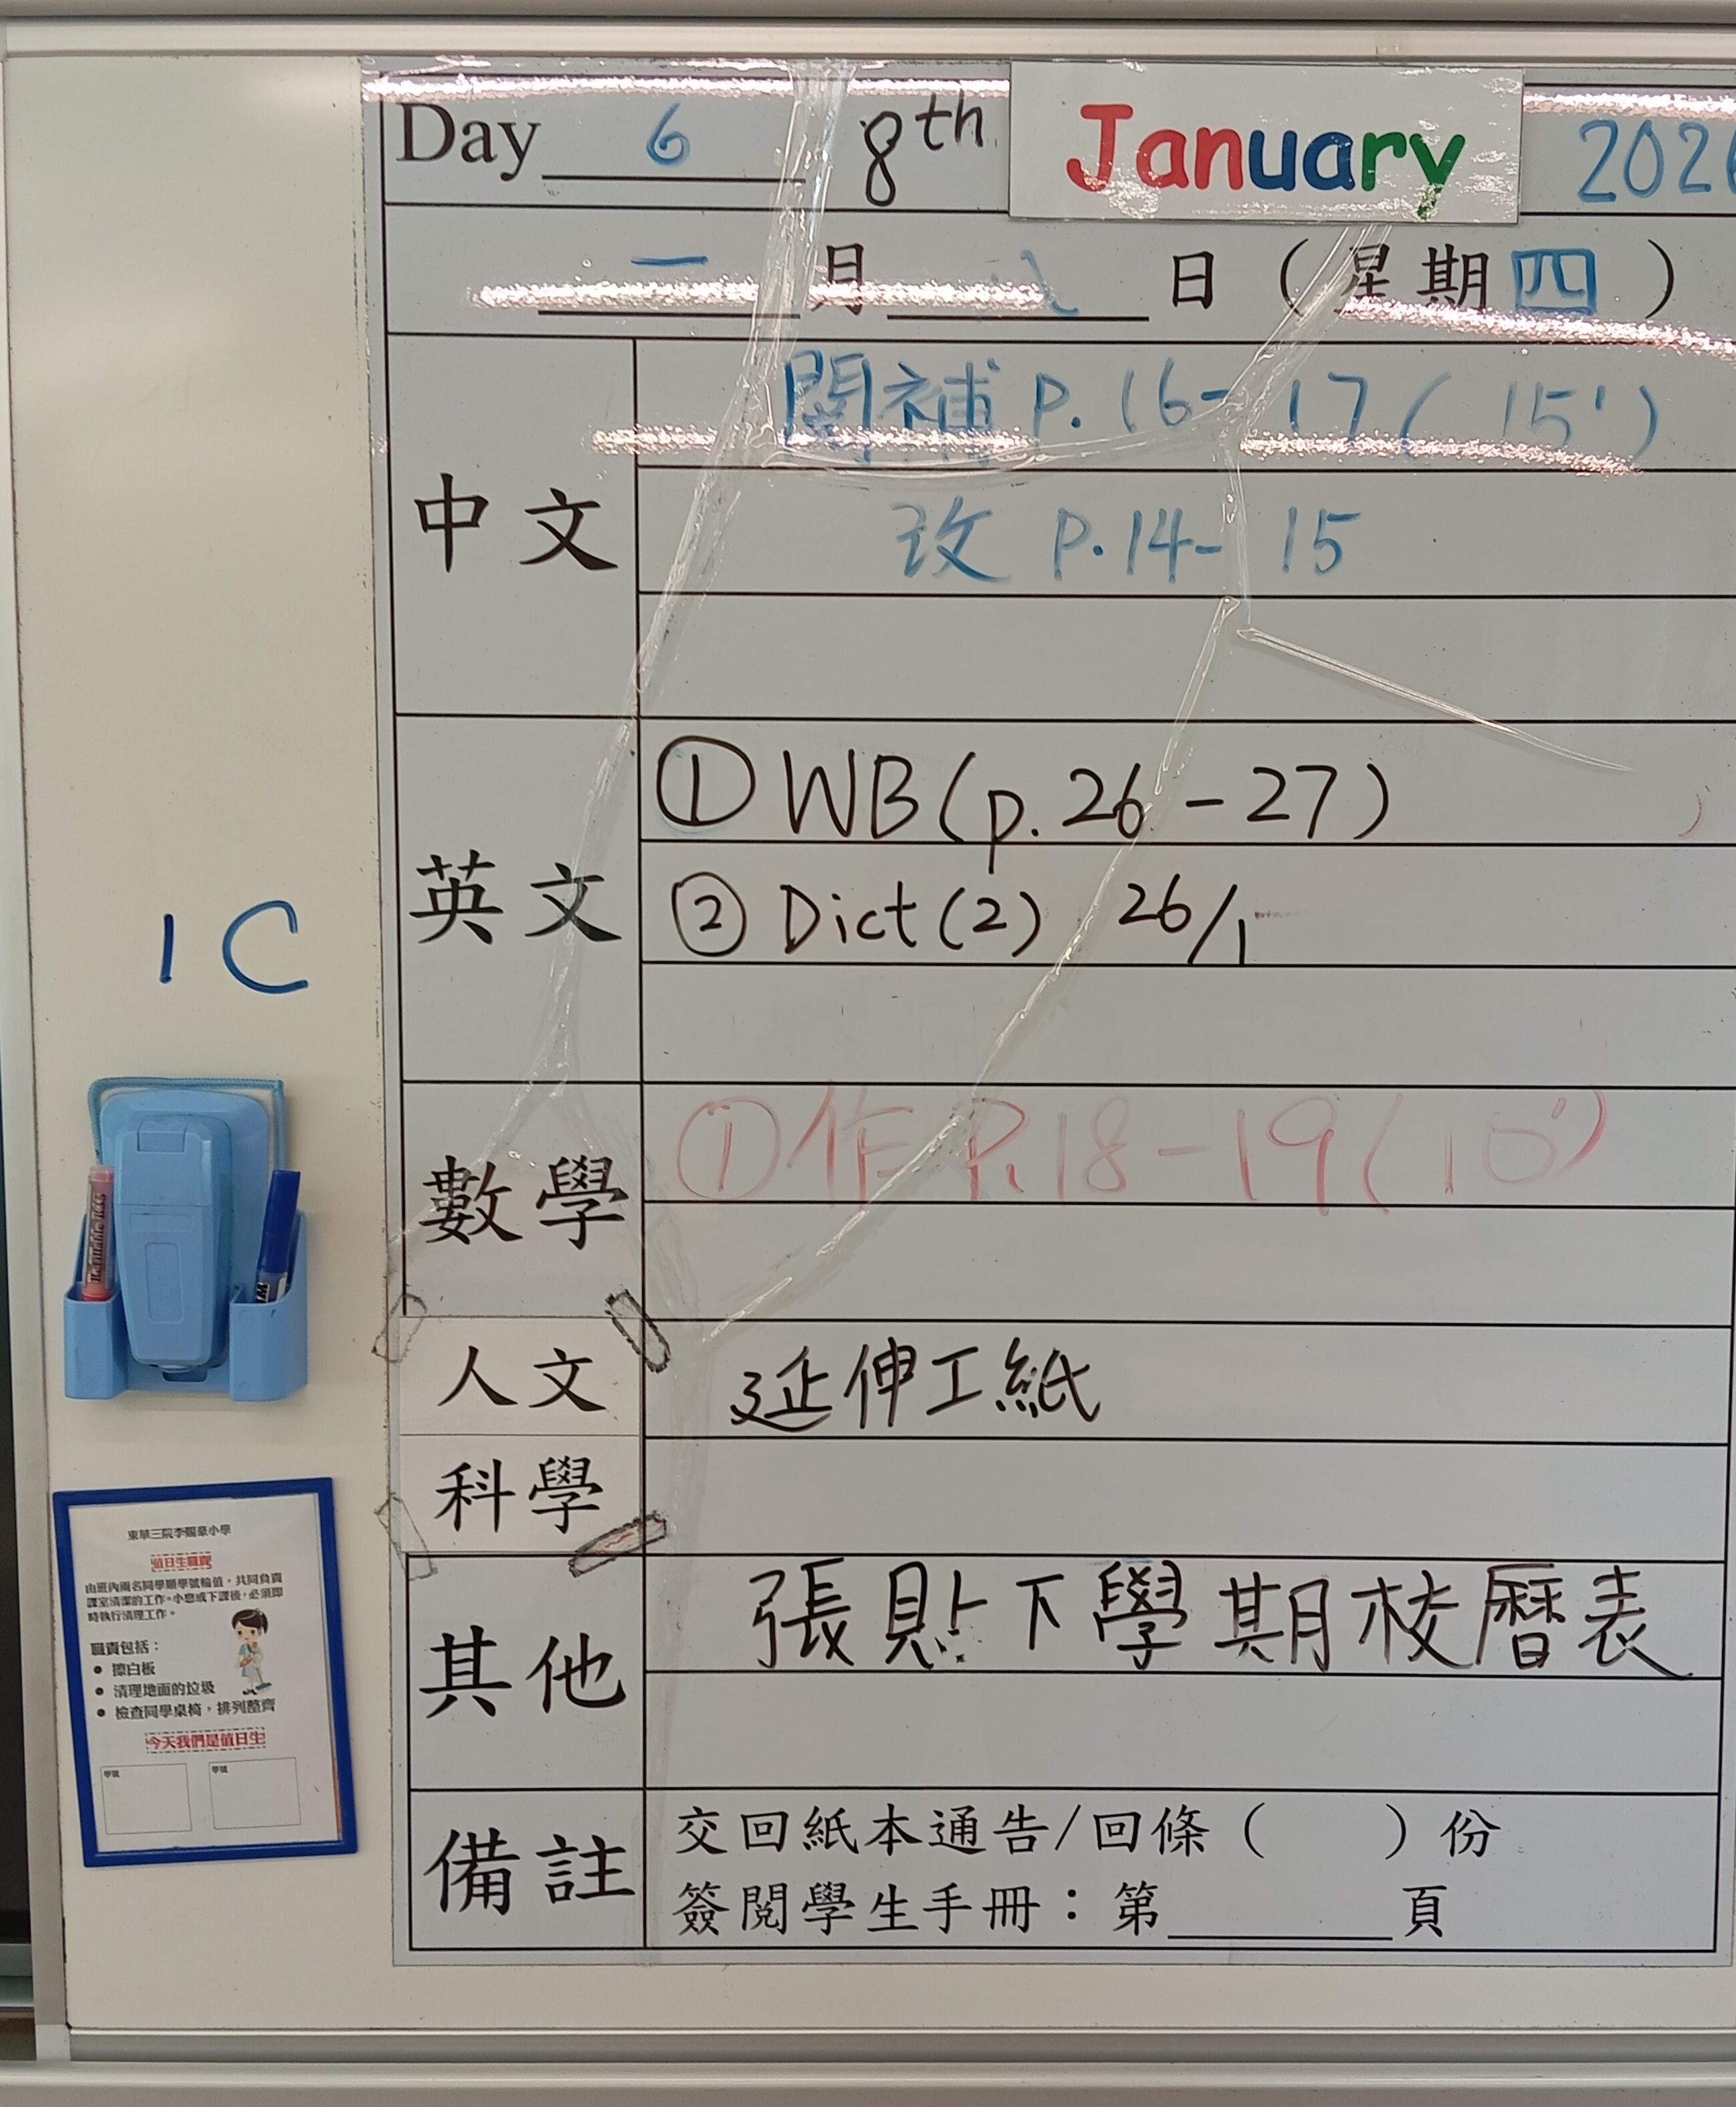 Day 6 8th January 2026
一月八日（星期四）
中文
閱補 P.16-17（15'）
改 P.14-15
英文
① WB(p.26-27)
② Dict(2) 26/1
數學
①作 P.18-19(10')
人文
延伸工紙
科學
其他
張貼下學期校曆表
備註
交回紙本通告/回條（ ）份
簽閱學生手冊：第______頁
1C
Refillable
東華三院李賜豪小學
值日生職責
由班內兩名同學順學號輪值，共同負責
課室清潔的工作。小息或下課後，必須即
時執行清理工作。
職責包括：
• 擦白板
• 清理地面的垃圾
• 檢查同學桌椅，排列整齊
今天我們是值日生
學號 學號